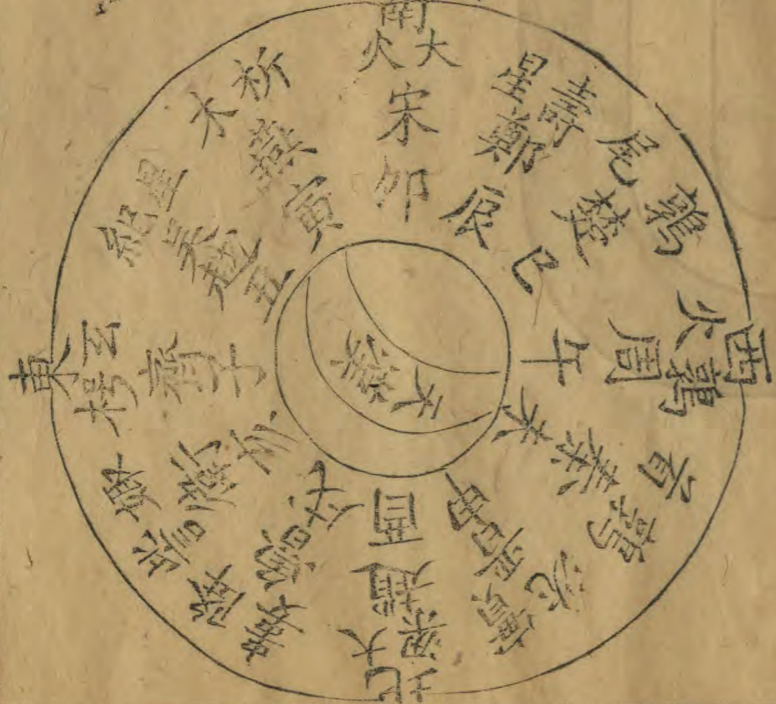 南
大火
宋
卯
壽星
鄭
辰
鶉尾
楚
巳
西
鶉火
周
午
鶉首
秦
未
實沈
晉
申
北
大梁
趙
酉
降婁
魯
戌
娵訾
衛
亥
東
玄枵
齊
子
星紀
吳越
丑
析木
燕
寅
天漢